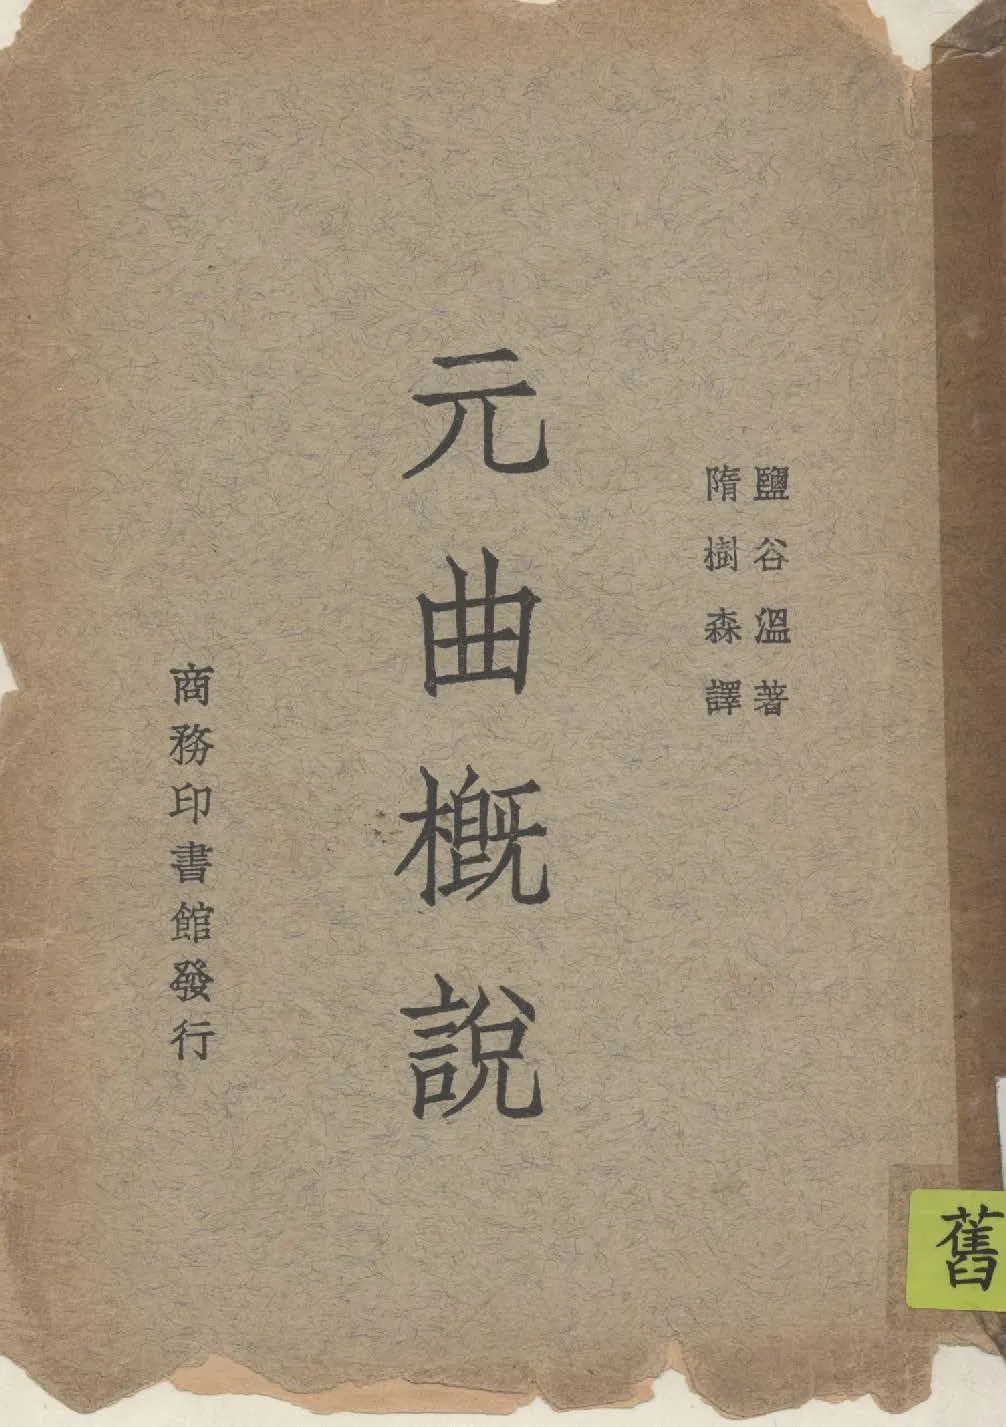 鹽谷溫著
隋樹森譯
元曲概說
商務印書館發行
舊